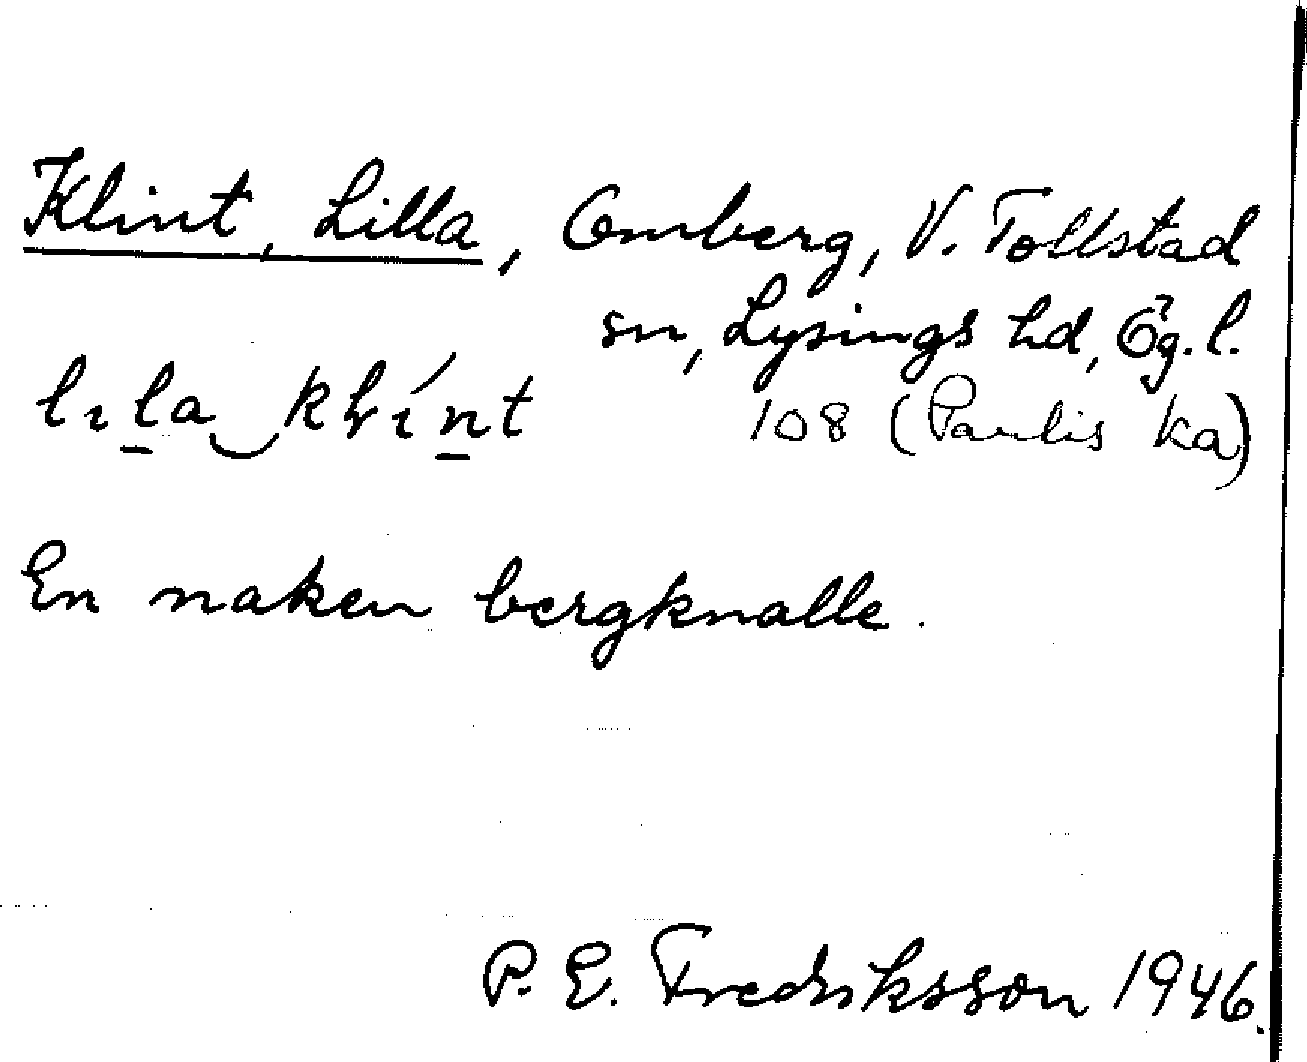 Klint, Lilla, Omberg, V. Tollstad
sn, Lysings hd, Ög. l.
lıla‿klínt
108 (Paulis ka)
En naken bergknalle.
P. E. Fredriksson 1946.